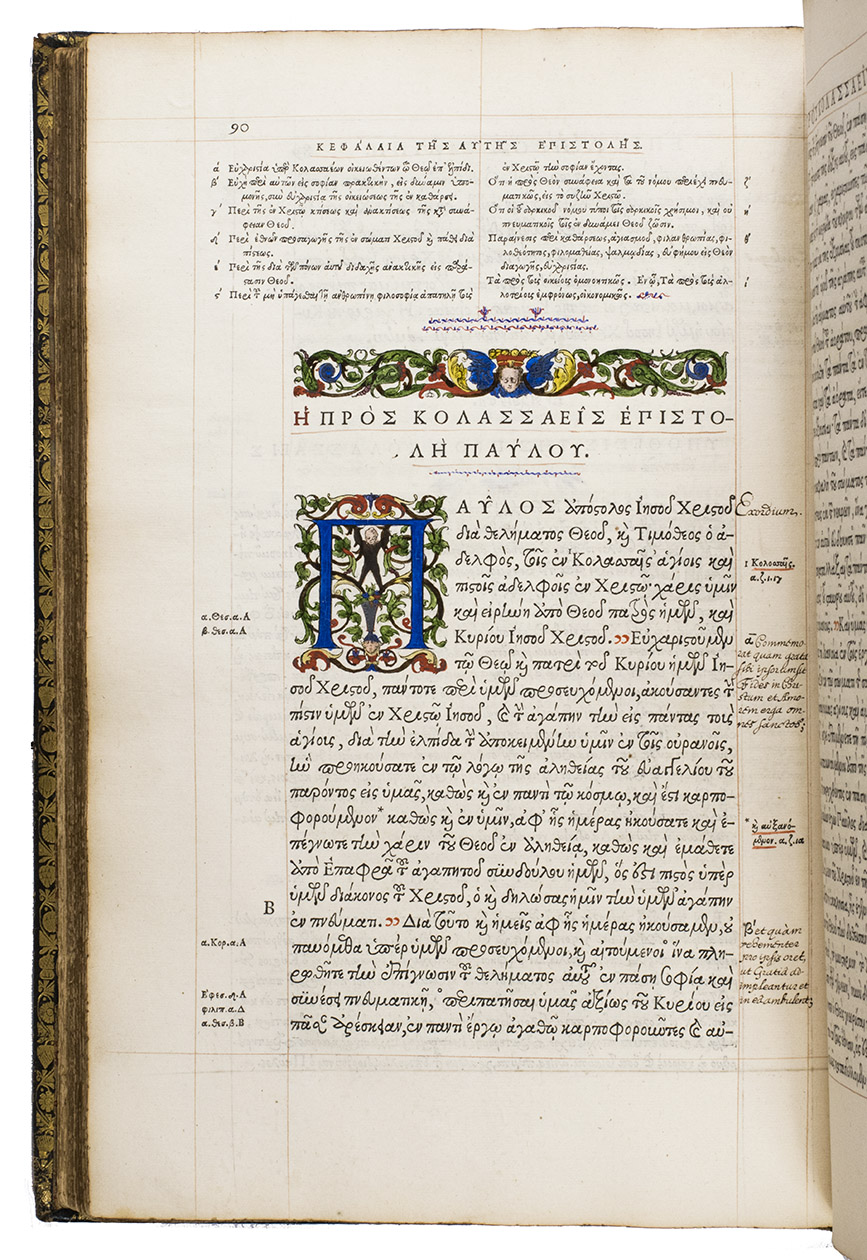 90
ΚΕΦΑΛΑΙΑ ΤΗΣ ΑΥΤΗΣ ΕΠΙΣΤΟΛΗΣ.
α Εὐχαριστία ὑπὲρ Κολασσαέων οἰκειωθέντων τῷ Θεῷ ἐπ' ἐλπίδι.
β Εὐχὴ περὶ αὐτῶν εἰς σοφίαν πρακτικὴν, εἰς δύναμιν ὑπο-
μονῆς, σὺν εὐχαριστίᾳ τῆς οἰκειώσεως τῆς ἐν καθάρσει.
γ Περὶ τῆς ἐν Χριστῷ κτίσεως καὶ ἀνακτίσεως τῆς κατὰ συνά-
φειαν Θεοῦ.
δ Περὶ ἐθνῶν προσαγωγῆς τῆς ἐν σώματι Χριστοῦ καὶ πάθει διὰ
πίστεως.
ε Περὶ τῆς διὰ τῶν πόνων αὐτοῦ διδαχῆς
Θεοῦ.
ς Περὶ τοῦ μὴ ὑπάγεσθαι τῇ ἀνθρωπίνῃ φιλοσοφίᾳ ἀπατηλῇ τοὺς
ἐν Χριστῷ τὴν σοφίαν ἔχοντας.
Ὅτι ἡ πρὸς Θεὸν συνάφεια καὶ τὰ τοῦ νόμου περιέχει πνευ- ζ
ματικῶς, εἰς τὸ συζῆν Χριστῷ.
Ὅτι οἱ τοῦ σαρκικοῦ νόμου τύποι τοῖς σαρκικοῖς χρήσιμοι, καὶ οὐ η
πνευματικοῖς τοῖς ἐν δυνάμει Θεοῦ ζῶσιν.
Παραίνεσις περὶ καθάρσεως, ἁγιασμοῦ, φιλανθρωπίας, φι- θ
λοθεότητος, φιλομαθείας, ψαλμῳδίας, εὐφήμου εἰς Θεὸν
διαγωγῆς, εὐχαριστίας.
Τὰ πρὸς τοὺς οἰκείους ὁμονοητικῶς. Ἐν ᾧ, Τὰ πρὸς τοὺς ἀλ- ι
λοτρίους ἐμφρόνως, οἰκονομικῶς.
Η ΠΡΟΣ ΚΟΛΑΣΣΑΕΙΣ ΕΠΙΣΤΟ-
ΛΗ ΠΑΥΛΟΥ.
ΠΑΥΛΟΣ ἀπόστολος Ἰησοῦ Χριστοῦ
διὰ θελήματος Θεοῦ, καὶ Τιμόθεος ὁ ἀ-
δελφὸς, τοῖς ἐν Κολασσαῖς ἁγίοις καὶ
πιστοῖς ἀδελφοῖς ἐν Χριστῷ· χάρις ὑμῖν
καὶ εἰρήνη ἀπὸ Θεοῦ πατρὸς ἡμῶν, καὶ
Κυρίου Ἰησοῦ Χριστοῦ. Εὐχαριστοῦμεν
τῷ Θεῷ καὶ πατρὶ τοῦ Κυρίου ἡμῶν Ἰη-
σοῦ Χριστοῦ, πάντοτε περὶ ὑμῶν προσευχόμενοι, ἀκούσαντες τὴν
πίστιν ὑμῶν ἐν Χριστῷ Ἰησοῦ, καὶ τὴν ἀγάπην τὴν εἰς πάντας τοὺς
ἁγίους, διὰ τὴν ἐλπίδα τὴν ἀποκειμένην ὑμῖν ἐν τοῖς οὐρανοῖς,
ἣν προηκούσατε ἐν τῷ λόγῳ τῆς ἀληθείας τοῦ εὐαγγελίου τοῦ
παρόντος εἰς ὑμᾶς, καθὼς καὶ ἐν παντὶ τῷ κόσμῳ, καὶ ἔστι καρπο-
φορούμενον* καθὼς καὶ ἐν ὑμῖν, ἀφ' ἧς ἡμέρας ἠκούσατε καὶ ἐ-
πέγνωτε τὴν χάριν τοῦ Θεοῦ ἐν ἀληθείᾳ, καθὼς καὶ ἐμάθετε
ἀπὸ Ἐπαφρᾶ τοῦ ἀγαπητοῦ συνδούλου ἡμῶν, ὅς ἐστι πιστὸς ὑπὲρ
ὑμῶν διάκονος τοῦ Χριστοῦ, ὁ καὶ δηλώσας ἡμῖν τὴν ὑμῶν ἀγάπην
ἐν πνεύματι. Διὰ τοῦτο καὶ ἡμεῖς ἀφ' ἧς ἡμέρας ἠκούσαμεν, οὐ
παυόμεθα ὑπὲρ ὑμῶν προσευχόμενοι, καὶ αἰτούμενοι ἵνα πλη-
ρωθῆτε τὴν ἐπίγνωσιν τοῦ θελήματος αὐτοῦ ἐν πάσῃ σοφίᾳ καὶ
συνέσει πνευματικῇ, περιπατῆσαι ὑμᾶς ἀξίως τοῦ Κυρίου εἰς
πᾶσαν ἀρέσκειαν, ἐν παντὶ ἔργῳ ἀγαθῷ καρποφοροῦντες καὶ αὐ-
α. Θεσ. α. Α
β. Θεσ. α. Α
Β
α. Κορ. α. Α
Ἐφεσ. δ. Α
φιλιπ. α. Δ
α. θεσ. β. Β
Exordium.
1 Κολοσσαῖς
α. ζ. 1. 17
α Commemo-
rat quam grata
sibi ipsorum sit
Fides in Chri-
stum et Amo-
rem erga om-
nes sanctos;
* καὶ αὐξανό-
μενον. α. ζ. 1α
β et quàm
vehementer
pro ipsis oret,
ut Gratia ad-
impleantur et
in ea ambulent;